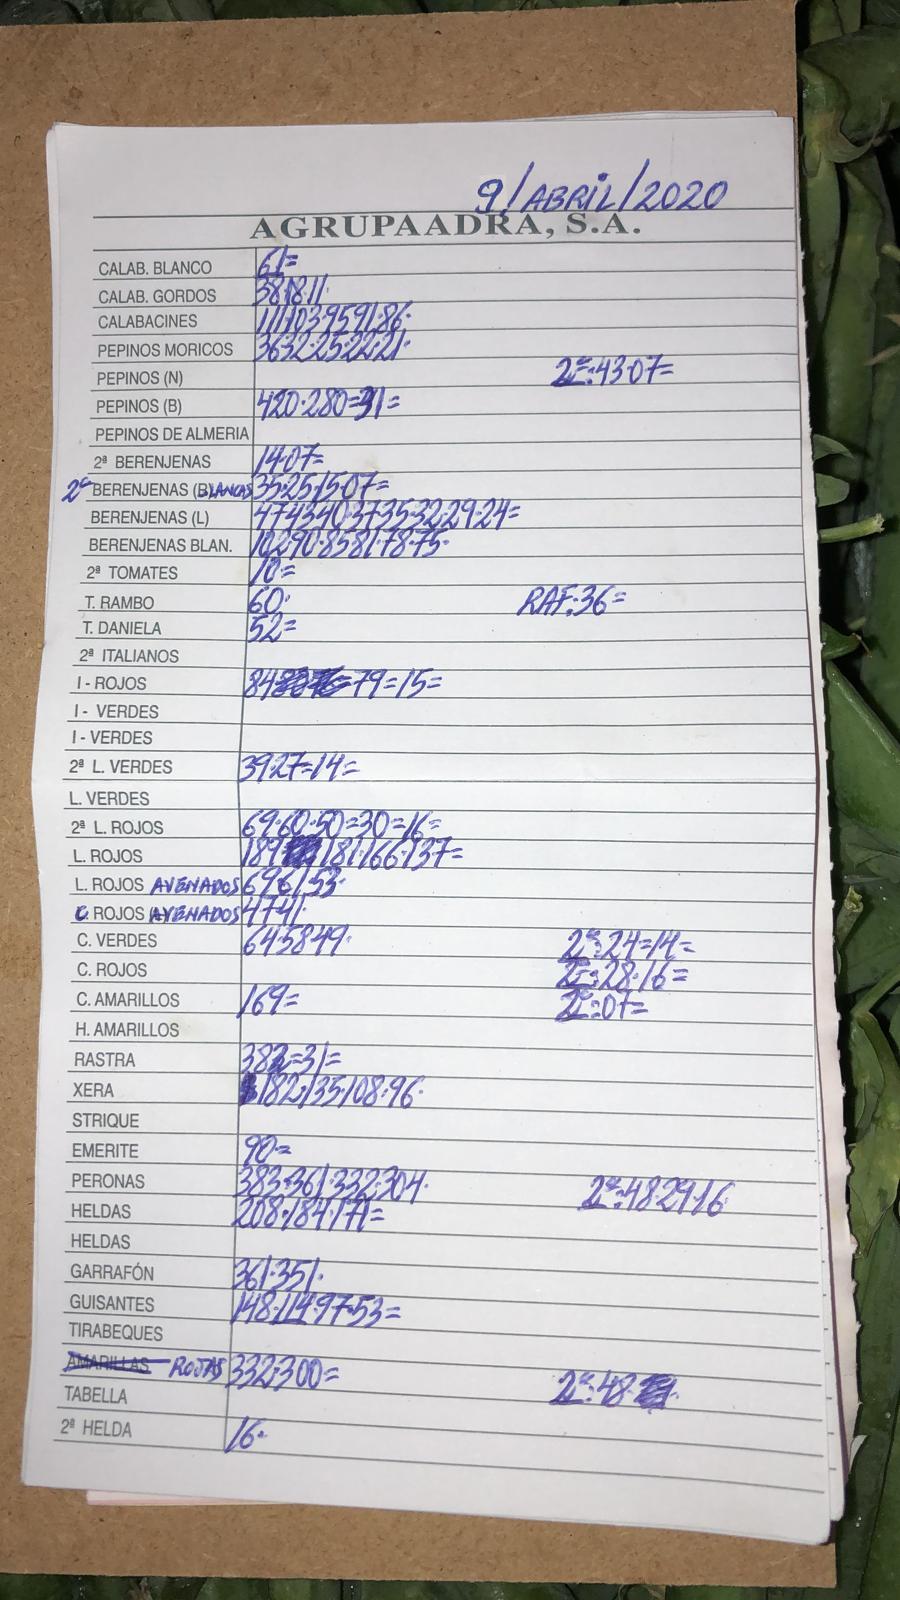 9/ABRIL/2020
AGRUPAADRA, S.A.
CALAB. BLANCO 61=
CALAB. GORDOS 38·18·11·
CALABACINES 111·103·95·91·86·
PEPINOS MORICOS 36·32·25·22·21·
PEPINOS (N) 2ª:43·07=
PEPINOS (B) 420·280=31=
PEPINOS DE ALMERIA
2ª BERENJENAS 14·07=
2ª BERENJENAS (BLANCAS 35·25·15·07=
BERENJENAS (L) 47·43·40·37·35·32·29·24=
BERENJENAS BLAN. 102·90·85·81·78·75·
2ª TOMATES 10=
T. RAMBO 60· RAF:36=
T. DANIELA 52=
2ª ITALIANOS
I - ROJOS 84 79=15=
I - VERDES
I - VERDES
2ª L. VERDES 39·27=14=
L. VERDES
2ª L. ROJOS 69·60·50=30=16=
L. ROJOS 189 181·166·137=
L. ROJOS AVENADOS 69·61·53·
C. ROJOS AVENADOS 47·41·
C. VERDES 64·58·49· 2ª:24=14=
C. ROJOS 2ª:28·16=
C. AMARILLOS 169= 2ª:07=
H. AMARILLOS
RASTRA 382=31=
XERA 182·135·108·96·
STRIQUE
EMERITE 90=
PERONAS 383·361·332·304· 2ª:48·29·16
HELDAS 208·184·171=
HELDAS
GARRAFÓN 361·351·
GUISANTES 148·114·97·53=
TIRABEQUES
AMARILLAS ROJAS 332·300=
TABELLA 2ª:48·
2ª HELDA 16·